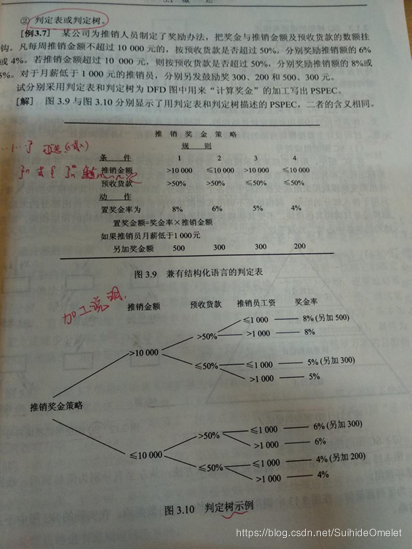 ② 判定表或判定树。
[例3.7] 某公司为推销人员制定了奖励办法，把奖金与推销金额及预收货款的数额挂
钩。凡每周推销金额不超过 10 000 元的，按预收货款是否超过 50%，分别奖励推销额的 6%
或 4%。若推销金额超过 10 000 元，则按预收货款是否超过 50%，分别奖励推销额的 8%或
5%。对于月薪低于 1 000 元的推销员，分别另发鼓励奖 300、200 和 500、300 元。
试分别采用判定表和判定树为 DFD 图中用来“计算奖金”的加工写出 PSPEC。
[解] 图 3.9 与图 3.10 分别显示了用判定表和判定树描述的 PSPEC，二者的含义相同。
推 销 奖 金 策 略
规 则
条 件 1 2 3 4
推销金额 >10 000 ≤10 000 >10 000 ≤10 000
预收货款 >50% >50% ≤50% ≤50%
动 作
置奖金率为 8% 6% 5% 4%
置奖金额=奖金率×推销金额
如果推销员月薪低于1 000元
另加奖金额 500 300 300 200
图 3.9 兼有结构化语言的判定表
加工说明
推销金额 预收货款 推销员工资 奖金率
≤1 000 8% (另加 500)
>50%
>1 000 8%
>10 000
≤1 000 5% (另加 300)
≤50%
>1 000 5%
推销奖金策略
≤1 000 6% (另加 300)
>50%
>1 000 6%
≤10 000
≤1 000 4% (另加 200)
≤50%
>1 000 4%
图 3.10 判定树示例
https://blog.csdn.net/SuihideOmelet